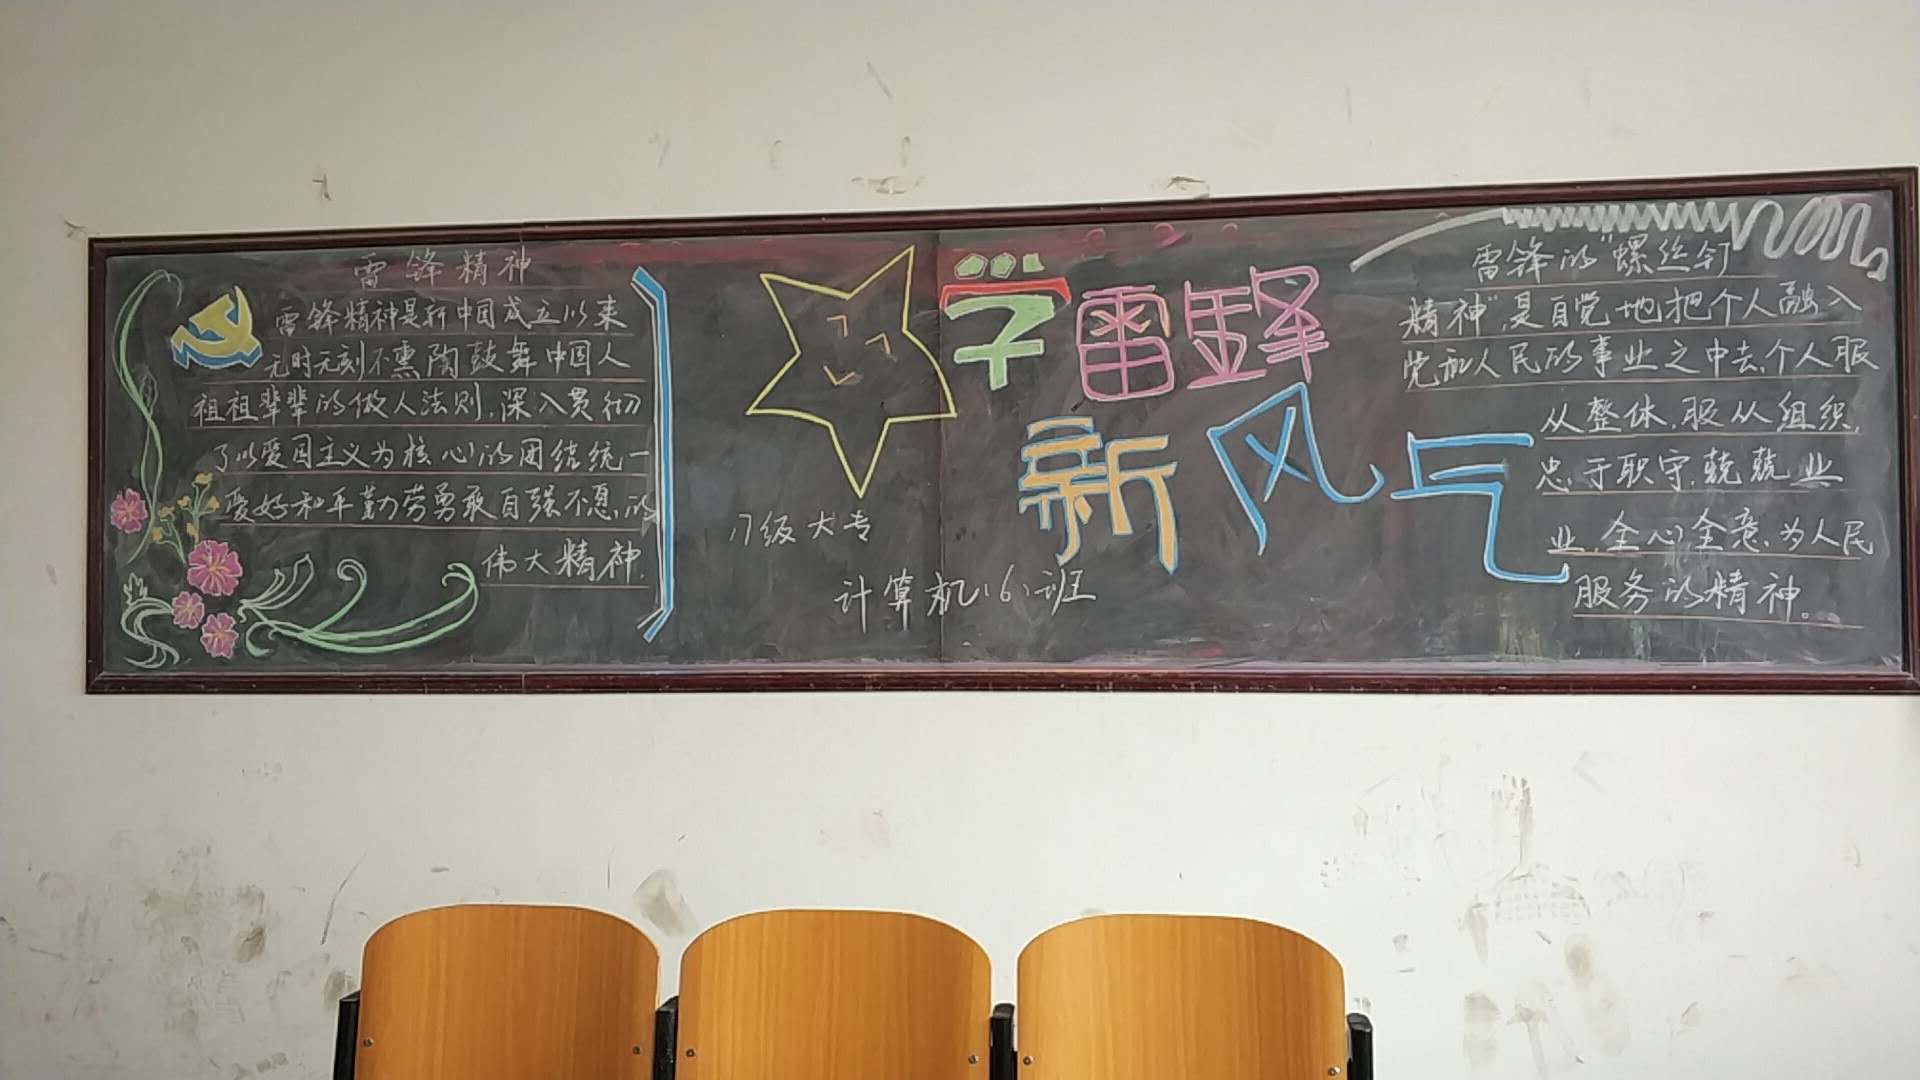 雷锋精神
雷锋精神是新中国成立以来
无时无刻不熏陶鼓舞中国人
祖祖辈辈的做人法则,深入贯彻
了以爱国主义为核心的团结统一
爱好和平勤劳勇敢自强不息,的
伟大精神.
学雷锋
新风气
17级大专
计算机(6)班
雷锋的“螺丝钉
精神”,是自觉地把个人融入
党和人民的事业之中去,个人服
从整体,服从组织,
忠于职守,兢兢业
业,全心全意,为人民
服务的精神。